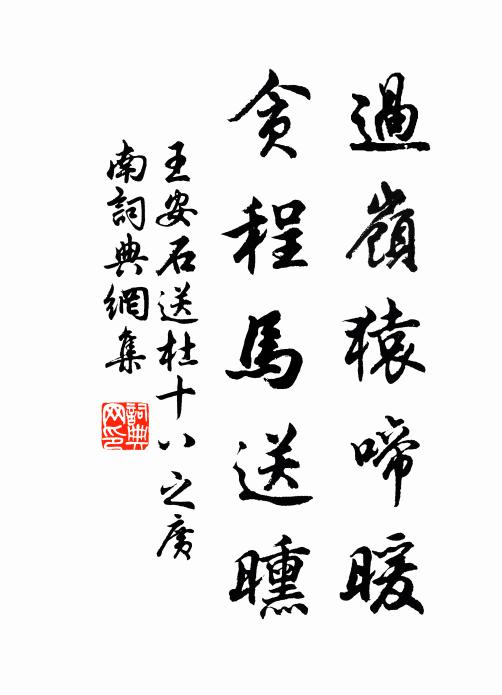 過嶺猿啼暖
貪程馬送曛
王安石送杜十八之廣
南詞典網集
詞典
网印